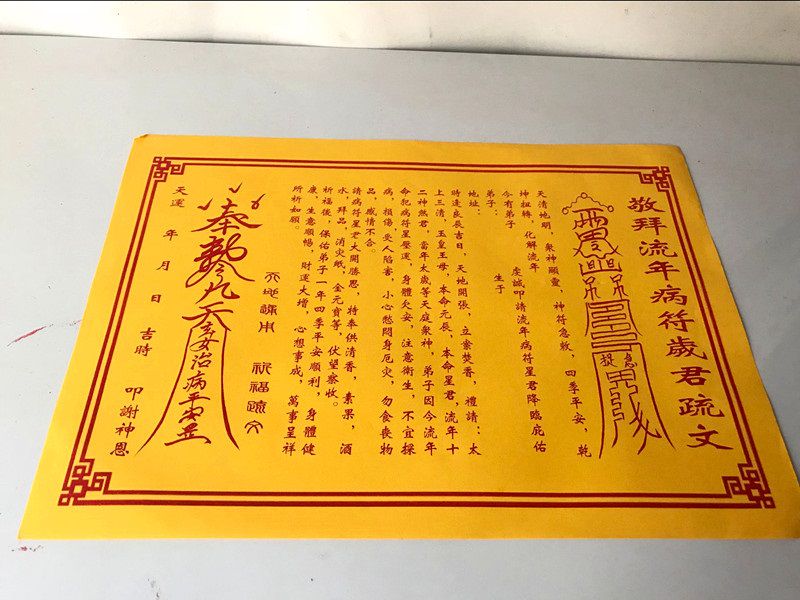 敬拜流年病符歲君疏文
天清地明,眾神顯靈,神符急救,四季平安,乾
坤扭轉,化解流年
今有弟子 虔誠叩請流年病符星君降臨庇佑
弟子: 生于
地址:
時逢良辰吉日,天地開張,立案焚香,禮請:太
上三清,玉皇王母,本命元辰,本命星君,流年十
二神煞君,當年太歲等天庭眾神,弟子因今流年
命犯病符星壓運,身體欠安,注意衛生,不宜探
病,損傷,受人陷害,小心愁悶身厄灾,勿食喪物
品,感情不合。
請病符星君大開勝恩,持奉供清香,素果,酒
水,拜品,消灾紙,金元寶等,伏望察收。
祈福後,保佑弟子一年四季平安順利,身體健
康,生意順暢,財運大增,心想事成,萬事呈祥
所祈如願。
祈福疏文
奉 九天 治病平安
天運 年 月 日 吉時 叩謝神恩